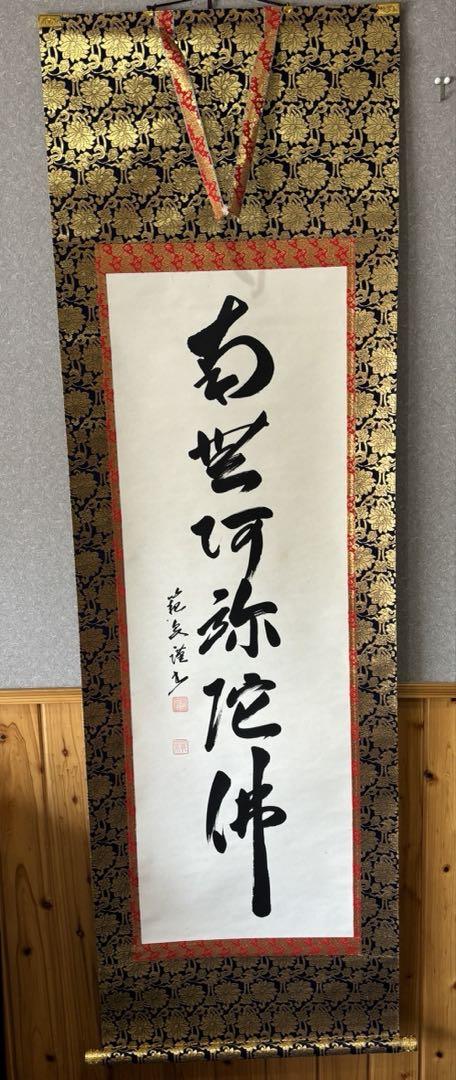 南無阿弥陀佛
範炎謹書